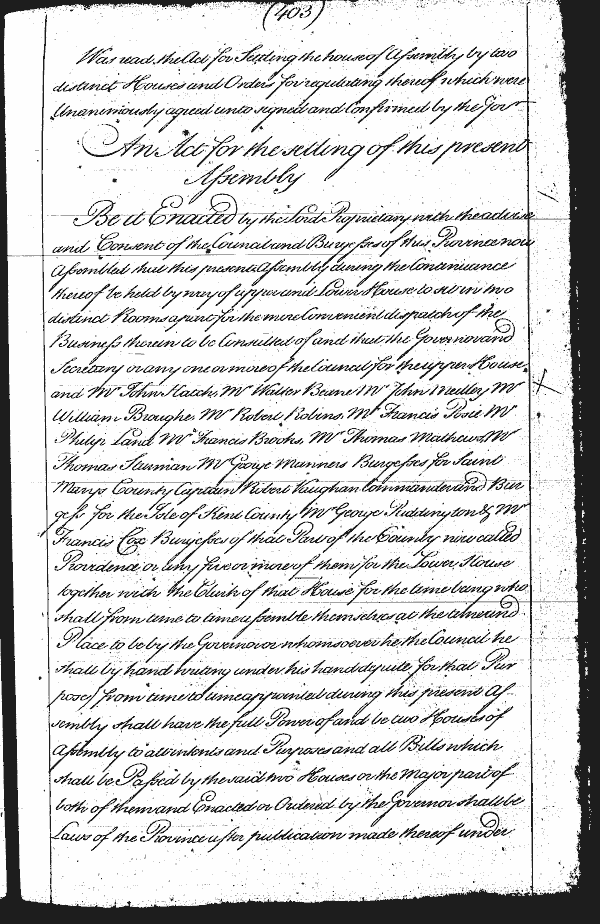 (403)
Was read the Act for Setling the house of Assembly by two
distinct Houses and Orders for regulating thereof which were
Unanimously agreed unto signed and Confirmed by the Govr
An Act for the setling of this present
Assembly
Be it Enacted by the Lord Proprietary with the advise
and Consent of the Council and Burgesses of this Province now
Assembled that this present Assembly during the Continuance
thereof be held by way of upper and Lower House to sit in two
distinct Rooms apart for the more Convenient dispatch of the
Business therein to be Consulted of and that the Governor and
Secretary or any one or more of the Council for the upper House
and Mr John Hatch, Mr Walter Beane Mr John Medley Mr
William Broughe, Mr Robert Robins, Mr Francis Posie Mr
Philip Land Mr Francis Brooks, Mr Thomas Mathews, Mr
Thomas Sturman Mr George Manners Burgesses for Saint
Marys County Captain Robert Vaughan Commander and Bur
gess for the Isle of Kent County Mr George Puddington & Mr
Francis Cox Burgesses of that Part of the County now called
Providence or any five or more of them for the Lower House
together with the Clerk of that House for the time being who
shall from time to time assemble themselves at the time and
Place to be by the Governor or whomsoever he the Council he
shall by hand writing under his hand depute for that Pur
pose from time to time appointed during this present As
sembly shall have the full Power of and be two Houses of
Assembly to all intents and Purposes and all Bills which
shall be Passed by the said two Houses or the Major part of
both of them and Enacted or Ordered by the Governor shall be
Laws of the Province after publication made thereof under